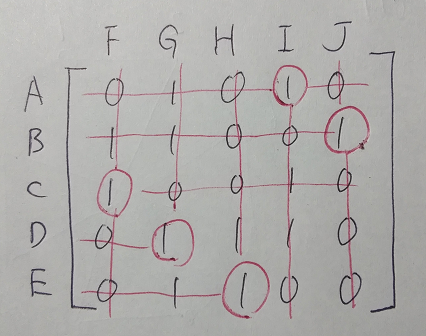 F G H I J
A 0 1 0 1 0
B 1 1 0 0 1
C 1 0 0 1 0
D 0 1 1 1 0
E 0 1 1 0 0